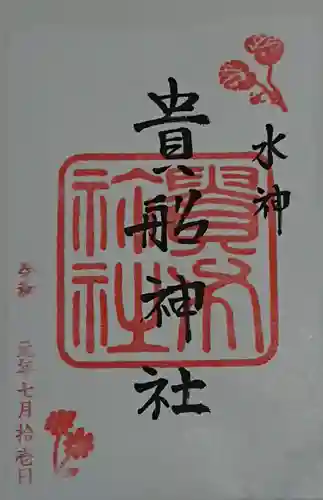 水神
貴船神社
貴船神社
令和 元年七月拾壱日